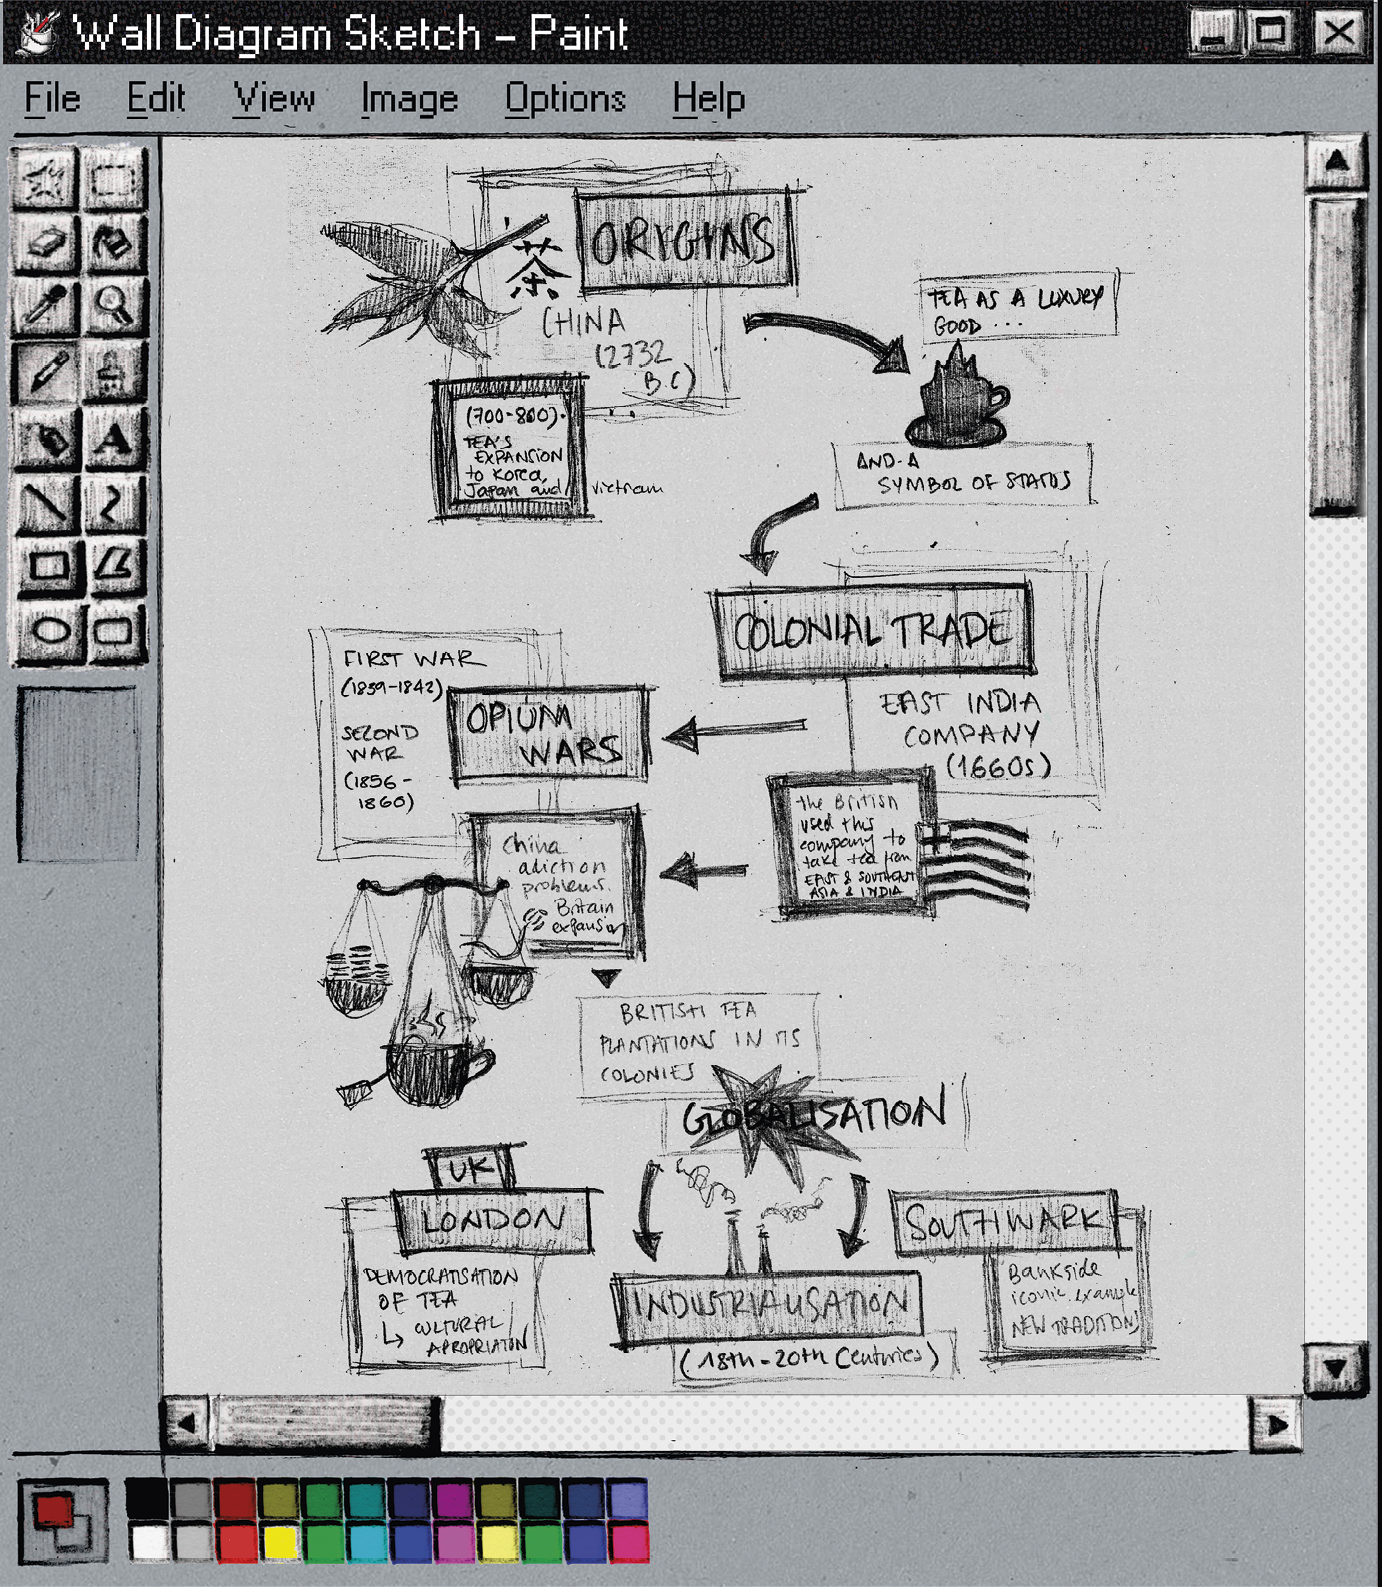 Wall Diagram Sketch – Paint
File Edit View Image Options Help
ORIGINS
茶
CHINA
(2732
B.C)
(700-800).
TEA'S
EXPANSION
to Korea,
Japan and Vietnam
TEA AS A LUXURY
GOOD ...
AND A
SYMBOL OF STATUS
COLONIAL TRADE
EAST INDIA
COMPANY
(1660s)
the British
used this
company to
take tea from
EAST & SOUTHEAST
ASIA & INDIA
OPIUM
WARS
FIRST WAR
(1839-1842)
SECOND
WAR
(1856-
1860)
China
adiction
problems.
Britain
expansion
BRITISH TEA
PLANTATIONS IN ITS
COLONIES
GLOBALISATION
UK
LONDON
DEMOCRATISATION
OF TEA
CULTURAL
APROPRIATION
INDUSTRIALISATION
(18th-20th Centuries)
SOUTHWARK
Bankside
iconic example
NEW TRADITIONS
A